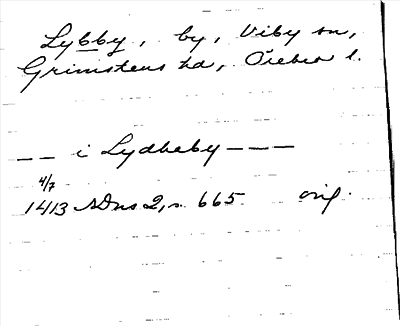 Lybby, by, Viby sn,
Grimstens hd, Örebro l.
– – i Lydheby – – –
4/7
1413 SDns 2, s. 665 orig.